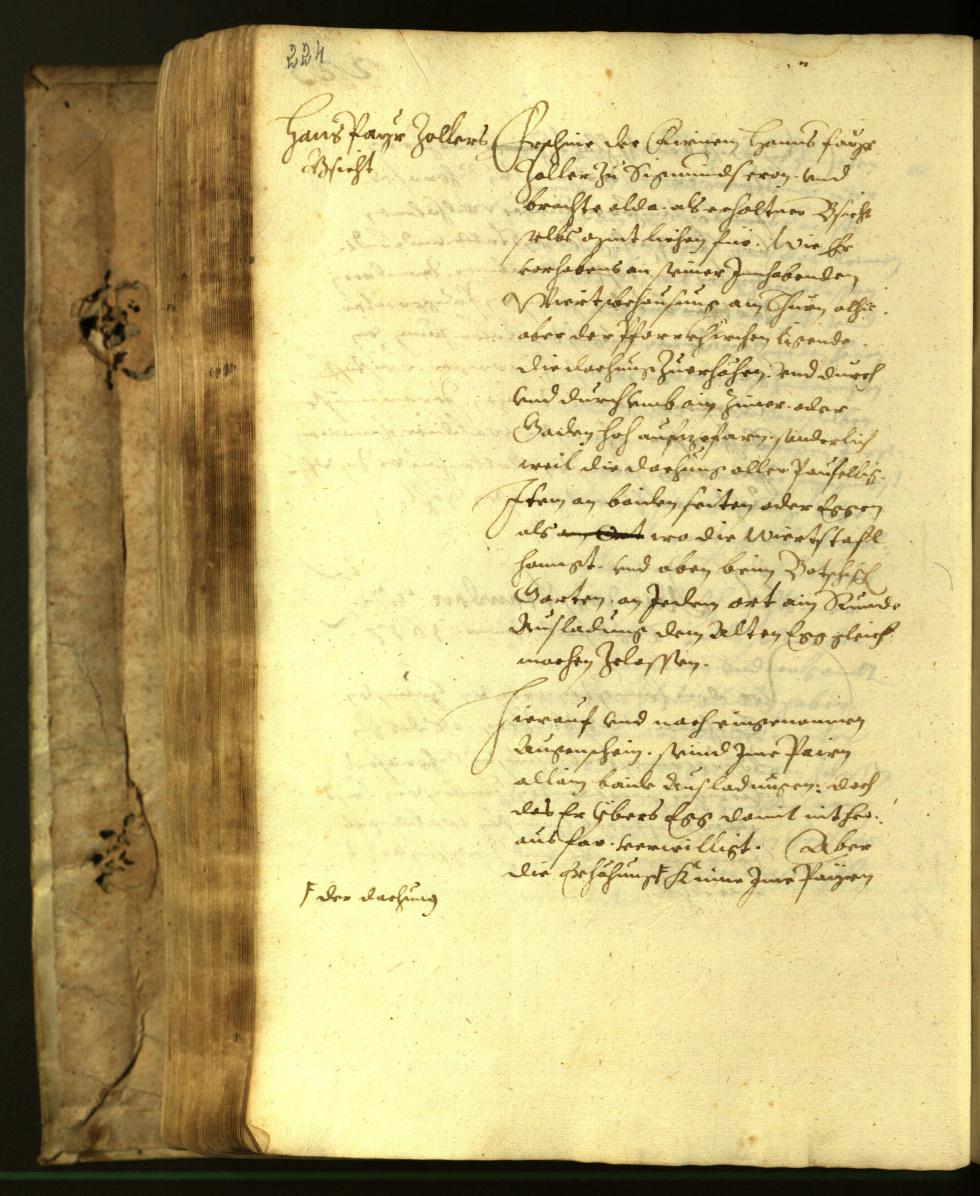 224
Hans Payr Zollers
Bsicht
Erschine der Ernem Hanns Payr
Zoller zu Sigmundscron. vnd
brachte alda. als erhaltner Bsicht
selbs mintlichen für. Wie Er
vorhabens an seiner Innhabenden
Wiertsbehausung am Thurn alhie.
ober der Pfarrkhirchen ligende.
die dachung zuerhöhen. vnd durch
vnd durch vmb ain Zimer. oder
Gaden hoch aufzefarn. sonderlich
weil die dachung aller Paufellig.
Item an baiden seiten oder Eggen
als an Ort wo die Wiertstafl
hanngt. vnd oben beim Botschisch
Garten. an Jedem ort ain Runde
Ausladung dem Alten Egg gleich
machen zelassen.
Hierauf vnd nach eingenomnen
Augenschein. seind Ime Pairn
allain baide Ausladungen. doch
das Er ybers Egg damit nit her-
aus far. verwilligt. Aber
die Erhöhung Ⱡ Künne Ime Payrn
Ⱡ der dachung